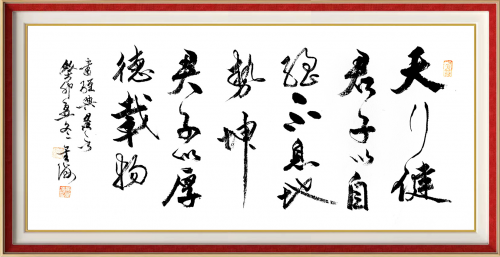 天行健
君子以自
強不息地
勢坤
君子以厚
德載物
經典
癸卯